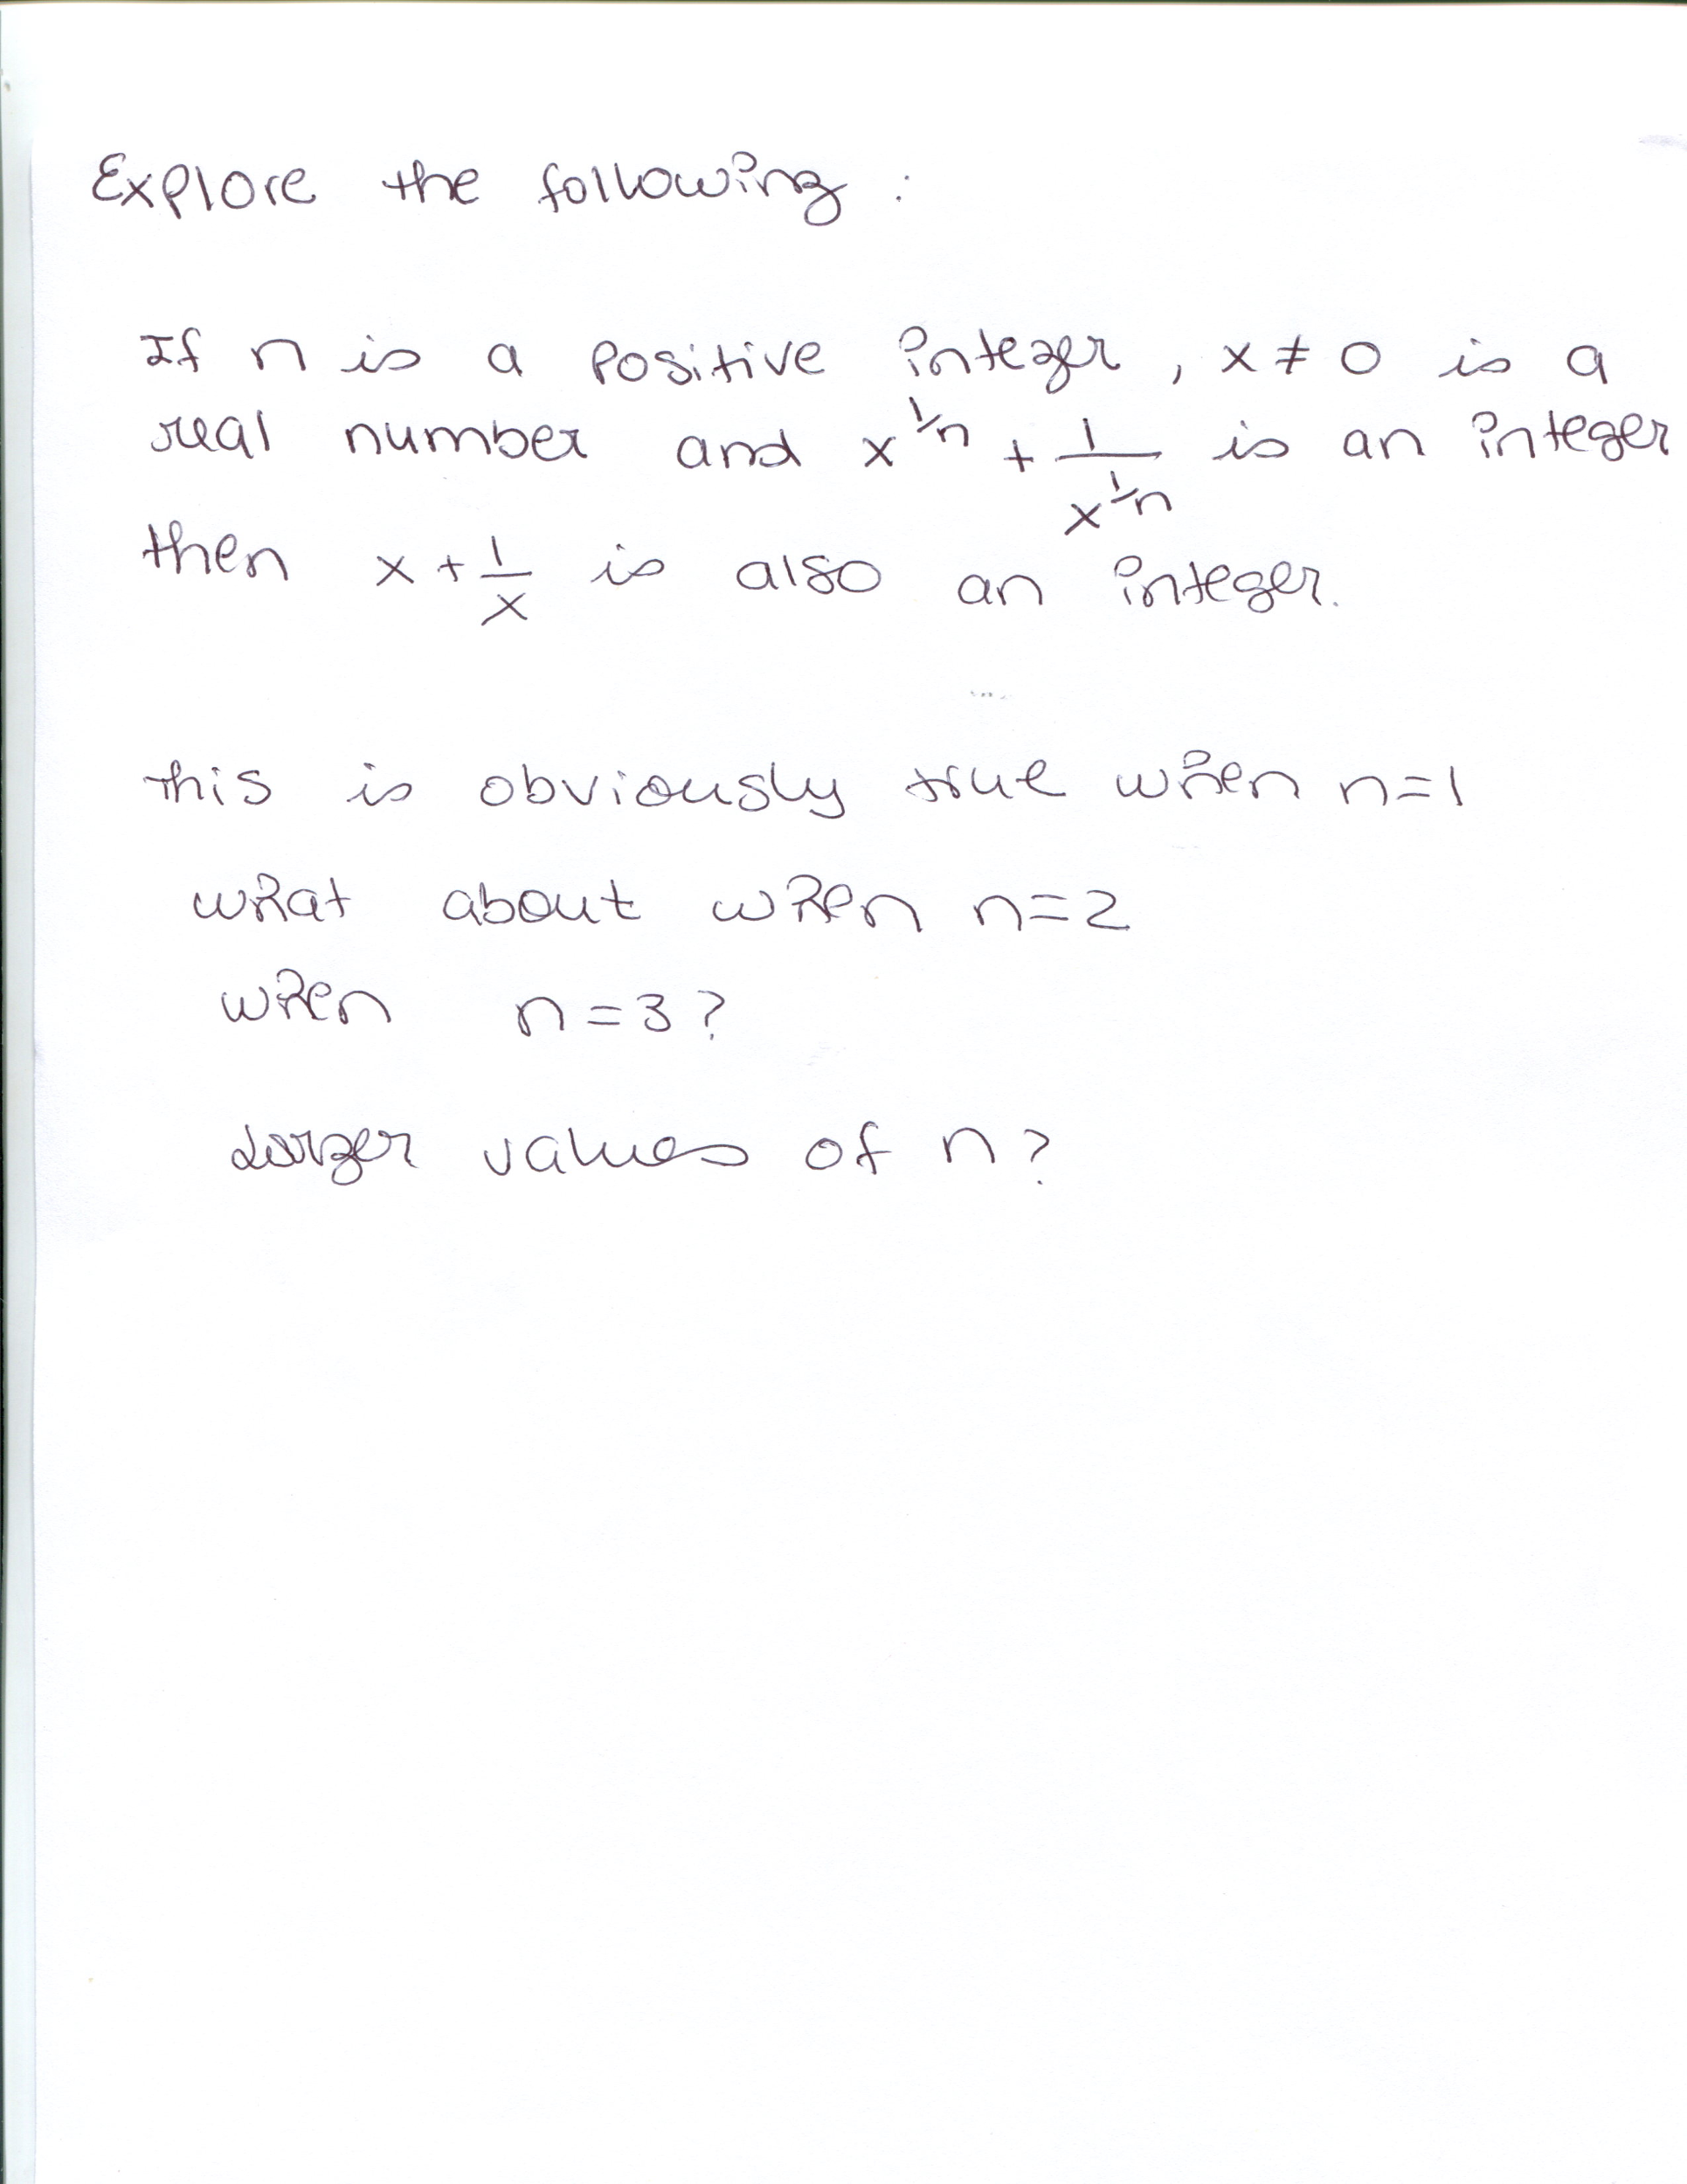 Explore the following :
If n is a positive integer, x ≠ 0 is a
real number and x^{1/n} + 1/x^{1/n} is an integer
then x + 1/x is also an integer.
This is obviously true when n=1
what about when n=2
when n=3?
Larger values of n?